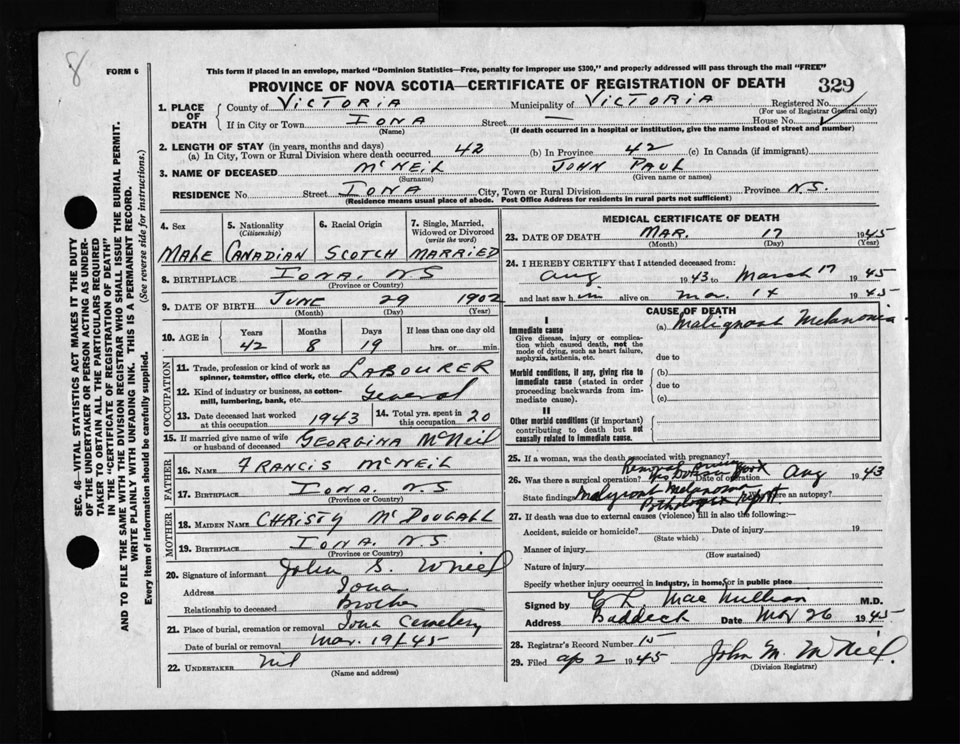 8
FORM 6
This form if placed in an envelope, marked "Dominion Statistics—Free, penalty for improper use $300," and properly addressed will pass through the mail "FREE"
PROVINCE OF NOVA SCOTIA—CERTIFICATE OF REGISTRATION OF DEATH 329
SEC. 46—VITAL STATISTICS ACT MAKES IT THE DUTY
OF THE UNDERTAKER OR PERSON ACTING AS UNDER-
TAKER TO OBTAIN ALL THE PARTICULARS REQUIRED
IN THE "CERTIFICATE OF REGISTRATION OF DEATH"
AND TO FILE THE SAME WITH THE DIVISION REGISTRAR WHO SHALL ISSUE THE BURIAL PERMIT.
WRITE PLAINLY WITH UNFADING INK. THIS IS A PERMANENT RECORD.
Every item of information should be carefully supplied. (See reverse side for instructions.)
1. PLACE OF DEATH County of VICTORIA Municipality of VICTORIA Registered No.
(For use of Registrar General only)
If in City or Town IONA Street — House No.
(Name) (If death occurred in a hospital or institution, give the name instead of street and number)
2. LENGTH OF STAY (in years, months and days)
(a) In City, Town or Rural Division where death occurred 42 (b) In Province 42 (c) In Canada (if immigrant)
3. NAME OF DECEASED McNEIL JOHN PAUL
(Surname) (Given name or names)
RESIDENCE No. Street IONA City, Town or Rural Division Province N.S.
(Residence means usual place of abode. Post Office Address for residents in rural parts not sufficient)
4. Sex
MALE
5. Nationality
(Citizenship)
CANADIAN
6. Racial Origin
SCOTCH
7. Single, Married, Widowed or Divorced
(write the word)
MARRIED
8. BIRTHPLACE IONA, NS
(Province or Country)
9. DATE OF BIRTH JUNE 29 1902
(Month) (Day) (Year)
10. AGE in Years Months Days If less than one day old
42 8 19 hrs. or min.
OCCUPATION
11. Trade, profession or kind of work as spinner, teamster, office clerk, etc. LABOURER
12. Kind of industry or business, as cotton-mill, lumbering, bank, etc. General
13. Date deceased last worked at this occupation 1943 14. Total yrs. spent in this occupation 20
15. If married give name of wife or husband of deceased GEORGINA McNeil
FATHER
16. NAME FRANCIS McNEIL
17. BIRTHPLACE IONA, N.S.
(Province or Country)
MOTHER
18. MAIDEN NAME CHRISTY McDOUGALL
19. BIRTHPLACE IONA. N.S
(Province or Country)
20. Signature of informant John S. McNeil
Address Iona
Relationship to deceased Brother
21. Place of burial, cremation or removal Iona Cemetery
Date of burial or removal Mar. 19/45
22. UNDERTAKER Nil
(Name and address)
MEDICAL CERTIFICATE OF DEATH
23. DATE OF DEATH MAR. 17 1945
(Month) (Day) (Year)
24. I HEREBY CERTIFY that I attended deceased from:
Aug 1943 to March 17 1945
and last saw him alive on Mar. 14 1945
CAUSE OF DEATH
I
Immediate cause
Give disease, injury or complication which caused death, not the mode of dying, such as heart failure, asphyxia, asthenia, etc.
(a) Malignant Melanoma
due to
Morbid conditions, if any, giving rise to immediate cause (stated in order proceeding backwards from immediate cause).
(b)
due to
(c)
II
Other morbid conditions (if important) contributing to death but not causally related to immediate cause.
25. If a woman, was the death associated with pregnancy?
26. Was there a surgical operation? Date of operation Aug 1943
State findings Malignant Melanoma Was there an autopsy?
Pathologist report
27. If death was due to external causes (violence) fill in also the following:—
Accident, suicide or homicide? Date of injury 19
(State which)
Manner of injury
(How sustained)
Nature of injury
Specify whether injury occurred in industry, in home, or in public place
Signed by C L MacMillan M.D.
Address Baddeck Date Mar 26 1945
28. Registrar's Record Number 15
29. Filed Ap 2 1945 John M. McNeil
(Division Registrar)